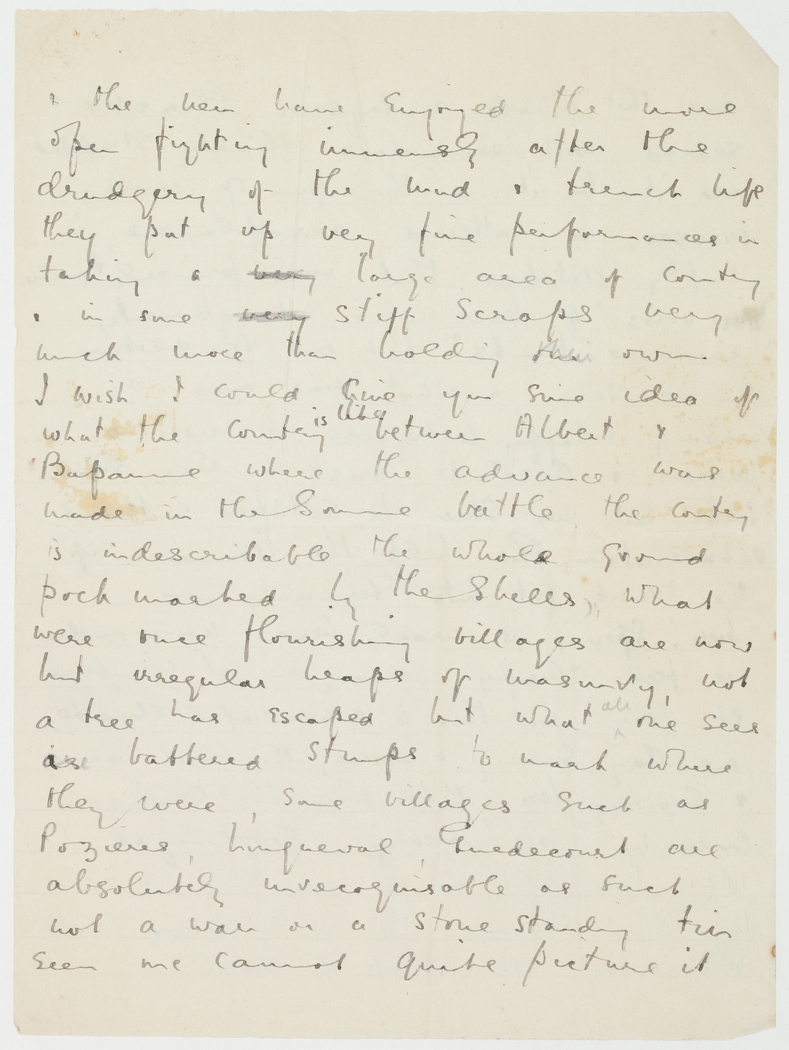 & the men have enjoyed the more
open fighting immensely after the
drudgery of the mud & trench life
they put up very fine performances in
taking a very large area of country
& in some very stiff scraps very
much more than holding their own
I wish I could give you some idea of
what the country is like between Albert &
Bapaume where the advance was
made in the Somme battle the country
is indescribable the whole ground
pock marked by the shells, what
were once flourishing villages are now
but irregular heaps of masonry, not
a tree has escaped but what all one sees
are battered stumps to mark where
they were, some villages such as
Pozieres, Longueval, Guedecourt are
absolutely unrecognisable as such
not a wall or a stone standing till
seen one cannot quite picture it